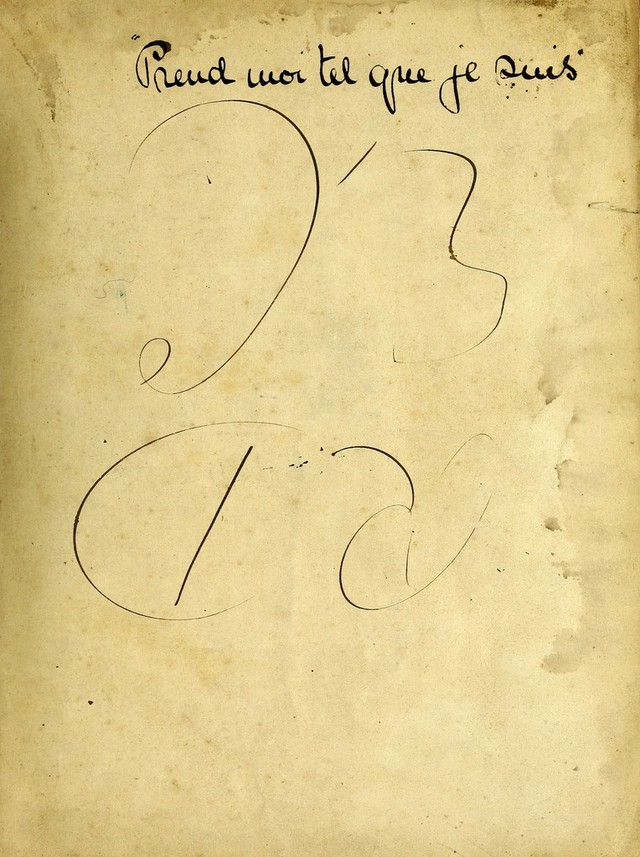 "Prend moi tel que je suis"